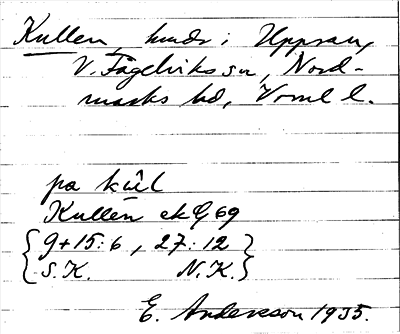 Kullen, hmdr i Uppsan,
V. Fågelviks sn, Nord-
marks hd, Vrml l.
på kul̂
Kullen ek G 69
9+15:6, 27:12
S.K. N.K.
E. Andersson 1935.